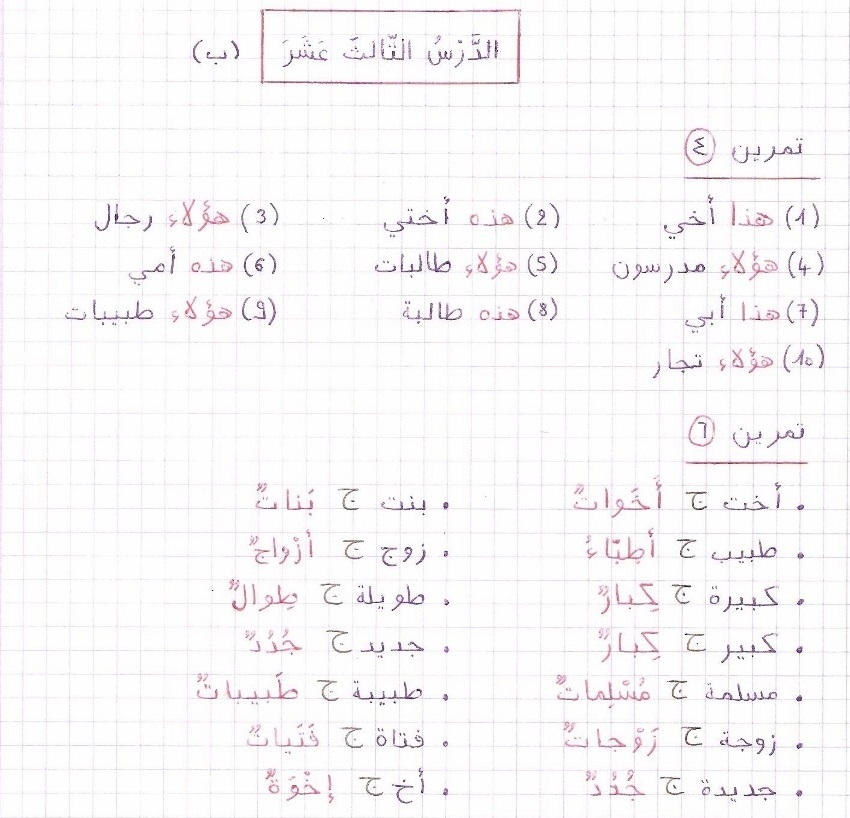 الدَّرْسُ الثّالثَ عَشَرَ (ب)
تمرين ٤
(1) هذا أخي (2) هذه أختي (3) هؤلاء رجال
(4) هؤلاء مدرسون (5) هؤلاء طالبات (6) هذه أمي
(7) هذا أبي (8) هذه طالبة (9) هؤلاء طبيبات
(10) هؤلاء تجار
تمرين ٦
• أخت ج أَخَواتٌ • بنت ج بَناتٌ
• طبيب ج أطِبّاءُ • زوج ج أزْواجٌ
• كبيرة ج كِبارٌ • طويلة ج طِوالٌ
• كبير ج كِبارٌ • جديد ج جُدُدٌ
• مسلمة ج مُسْلِماتٌ • طبيبة ج طَبيباتٌ
• زوجة ج زَوْجاتٌ • فتاة ج فَتَياتٌ
• جديدة ج جُدُدٌ • أخ ج إخْوَةٌ